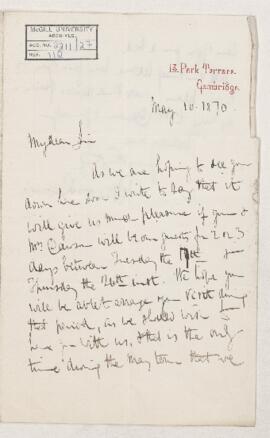 McGILL UNIVERSITY
ARCHIVES
ACC. NO. 2211/27
REF. 110
13, Park Terrace.
Cambridge.
May 10. 1870.
My dear Sir
As we are hoping to see you
down here soon I write to say that it
will give us much pleasure if you &
Mrs Dawson will be our guests for 2 or 3
days between Tuesday the
Thursday the 26th inst. We hope you
will be able to arrange your visit during
that period, as we should wish to
have you with us, & that is the only
time during the May term that we